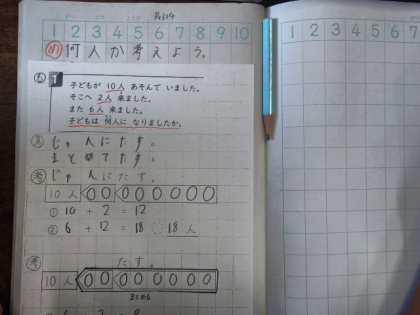 P.114
1 2 3 4 5 6 7 8 9 10
め 何人か考えよう。
も 1 子どもが 10人 あそんで いました。
そこへ 2人 来ました。
また 6人 来ました。
子どもは 何人に なりましたか。
見 じゅんにたす。
まとめてたす。
考 じゅんにたす。
10人
① 10 + 2 = 12
② 6 + 12 = 18 18人
考 たす。
10人
まとめる
1 2 3 4 5 6 7 8